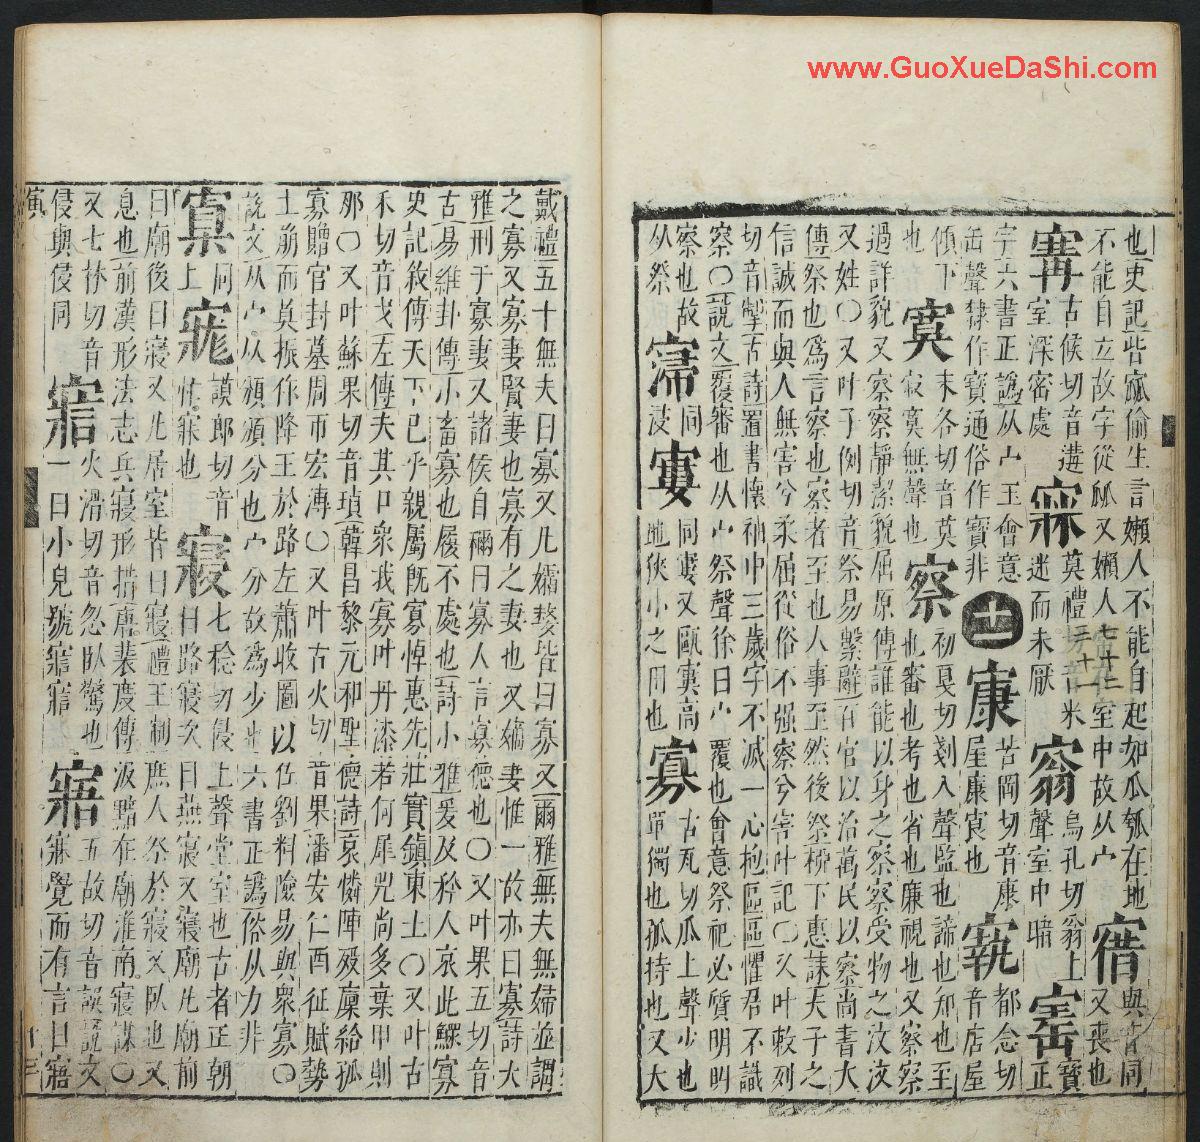 www.GuoXueDaShi.com
也史記呰窳偷生言嬾人不能自起如瓜瓠在地
不能自立故字從㼌又嬾人常在室中故从宀
與昔同
又喪也
古候切音遘
室深密處
莫禮切音米
迷而未厭
烏孔切翁上
聲室中暗
寶正
字六書正譌从宀玉會意
缶聲隸作寶通俗作寳非
十一
康
苦岡切音康
屋康㝗也
都念切
音店屋
傾下
寞
末各切音莫
寂寞無聲也
察
初戛切剗入聲監也諦也知也至
也審也考也省也廉視也又察察
過詳貌又察察靜潔貌屈原傳誰能以身之察察受物之汶汶
又姓〇又叶子例切音祭易繫辭百官以治萬民以察尚書大
傳祭也爲言察也察者至也人事至然後祭柳下惠誄夫子之
信誠而與人無害兮柔屈從俗不強察兮害叶記〇又叶敕列
切音掣古詩置書懷袖中三歲字不滅一心抱區區懼君不識
察〇說文覆審也从宀祭聲徐曰宀覆也會意祭祀必質明明
察也故
从祭
同
寠
同寠又甌寠高
地狹小之用也
寡
古瓦切瓜上聲少也
單獨也孤特也又大
戴禮五十無夫曰寡又凡孀嫠皆曰寡又爾雅無夫無婦並謂
之寡又寡妻賢妻也寡有之妻也又嫡妻惟一故亦曰寡詩大
雅刑于寡妻又諸侯自稱曰寡人言寡德也〇又叶果五切音
古易雜卦傳小畜寡也履不處也詩小雅爰及矜人哀此鰥寡
史記敘傳天下已平親屬旣寡悼惠先壯實鎮東土〇又叶古
禾切音戈左傳夫其口衆我寡叶丹漆若何犀兕尚多棄甲則
那〇又叶蘇果切音瑣韓昌黎元和聖德詩哀憐陣歿廩給孤
寡贈官封墓周帀宏溥〇又叶古火切音果潘安仁西征賦勢
土崩而莫振作降王於路左蕭收圖以佐劉料險易與衆寡〇
說文从宀从頒頒分也宀分故爲少也六書正譌俗从力非
同
上
謨郎切音
忙寐也
寢
七稔切侵上聲堂室也古者正朝
曰路寢次曰燕寢又寢廟凡廟前
曰廟後曰寢又凡居室皆曰寢禮王制庶人祭於寢又臥也又
息也前漢形法志兵寢形措唐裴度傳汲黯在廟淮南寢謀〇
又七林切音
侵與侵同
火滑切音忽臥驚也
一曰小兒號寣寣
寤
五故切音誤說文
寐覺而有言曰寤
十三